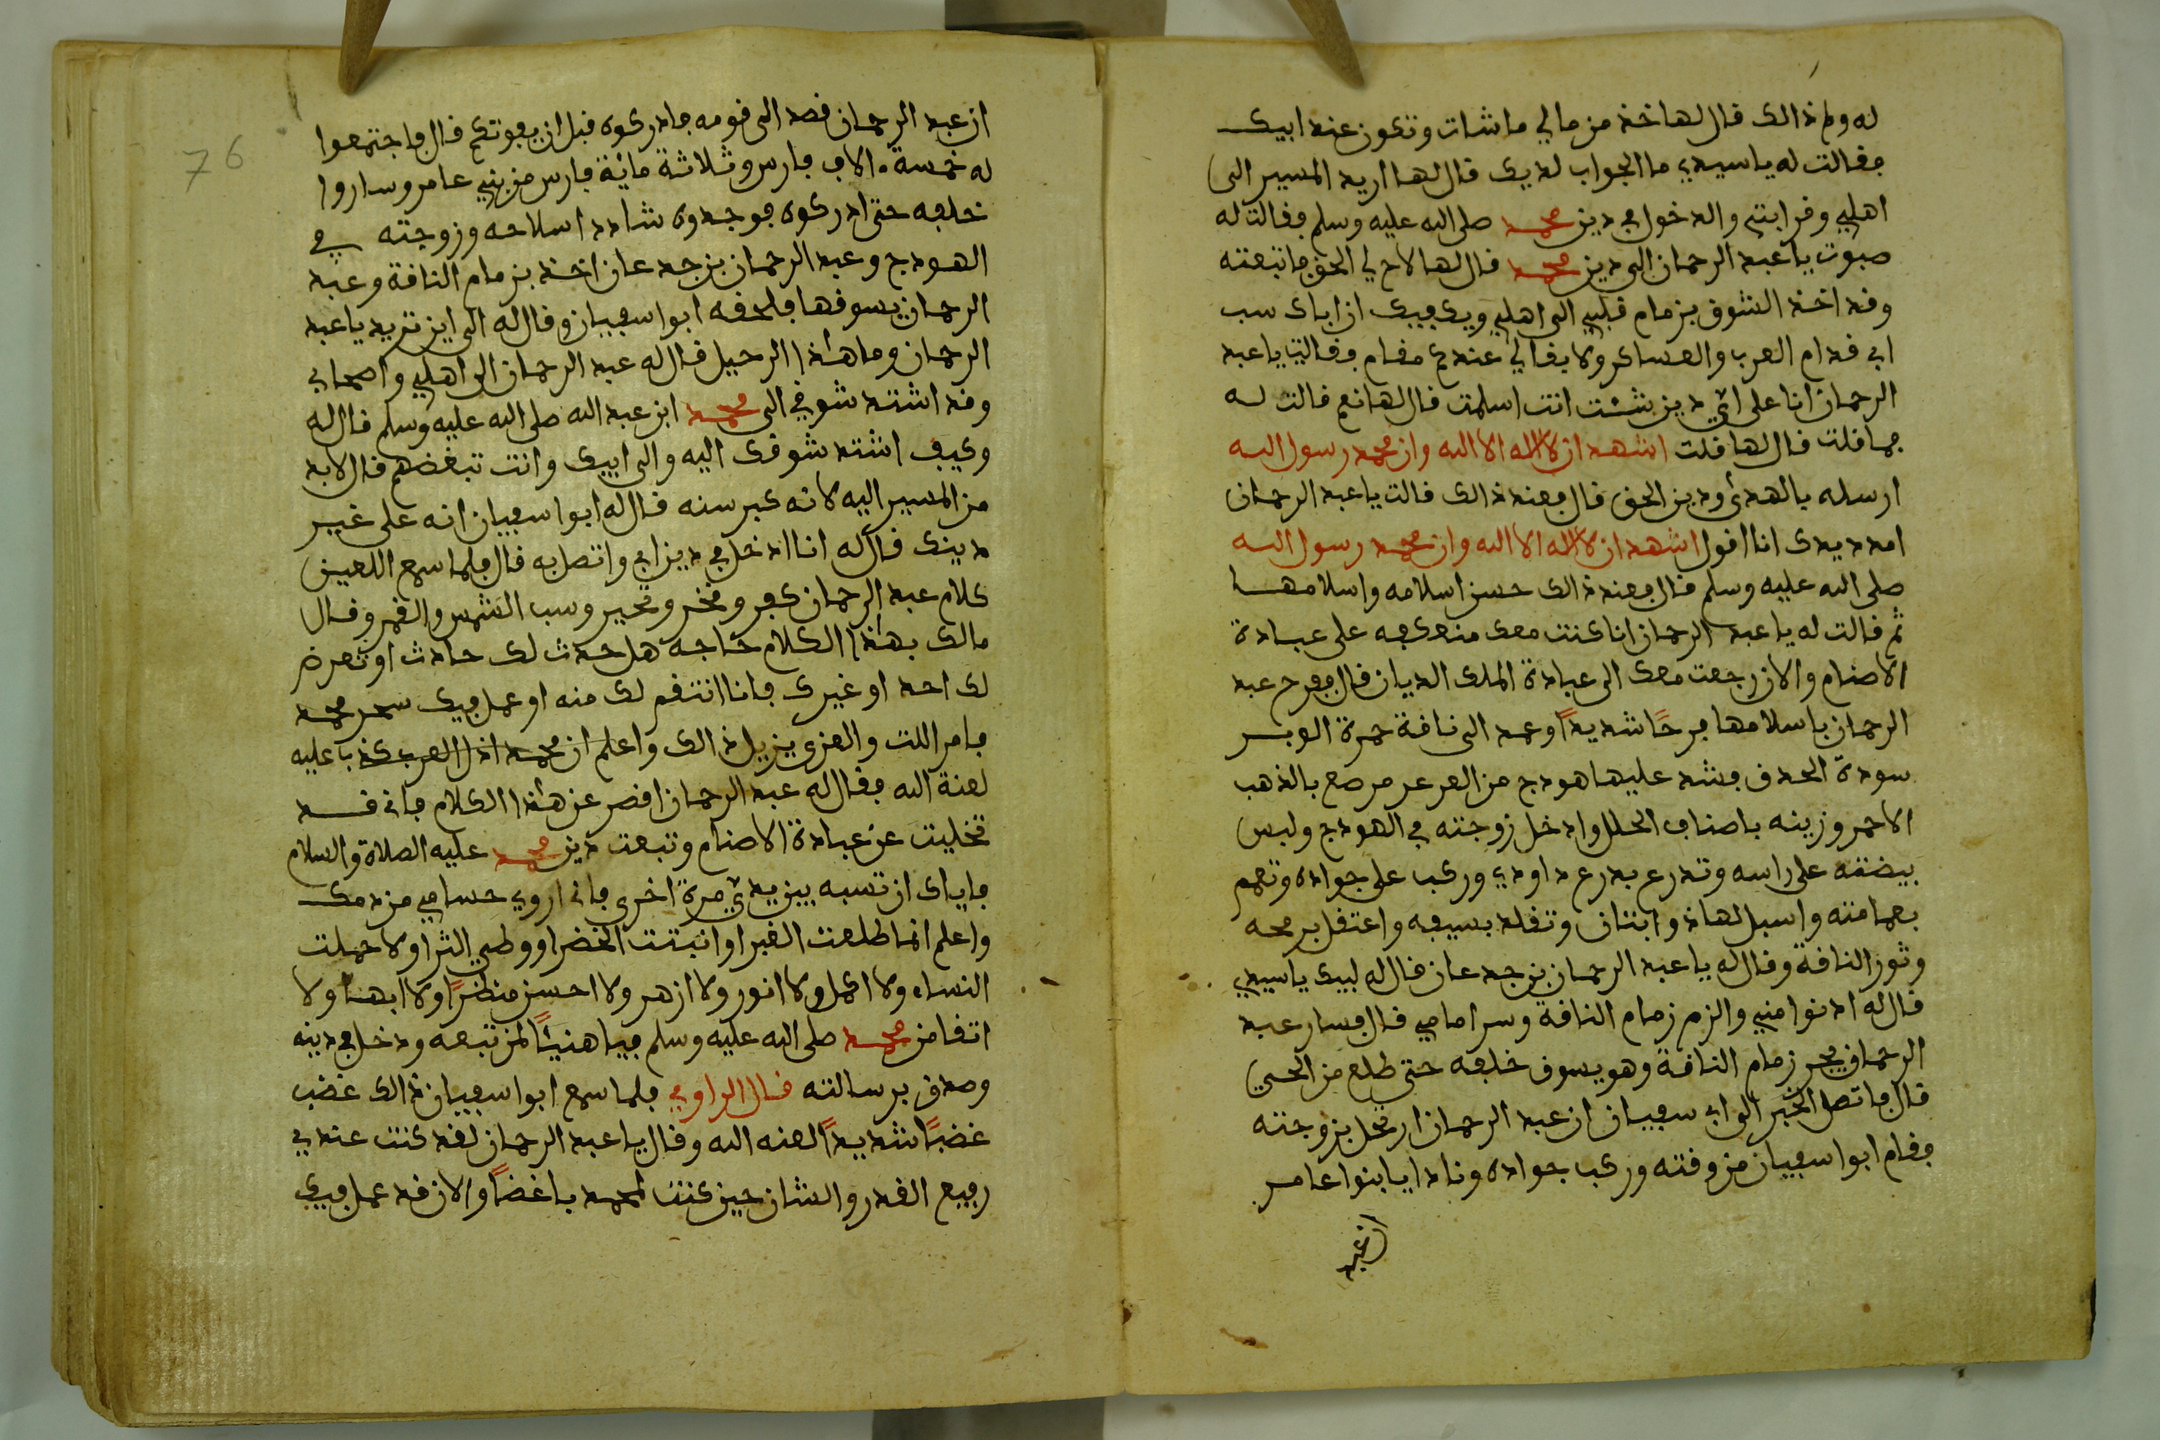 له ولم ذالك قال لها خذ من مالي ما شات وتكون عند ابيك
فقالت له ياسيدي ما الجواب لديك قال لها اريد المسير الى
اهلي وقرابتي والدخول في دين محمد صلى الله عليه وسلم فقالت له
صبوت يا عبد الرحمان الى دين محمد قال لها لاح لي الحق فاتبعته
وقد اخذ الشوق بزمام قلبي الى اهلي ويكفيك ان اباك سب
ابي قدام العرب والعساكر ولا بقا لي عندكم مقام فقالت يا عبد
الرحمان انا على اي دين شئت انت اسلمت قال لها نعم قالت له
فما قلت قال لها قلت اشهد ان لا اله الا الله وان محمد رسول الله
ارسله بالهدى ودين الحق قال فعند ذالك قالت يا عبد الرحمان
امدد يدك انا اقول اشهد ان لا اله الا الله وان محمد رسول الله
صلى الله عليه وسلم قال فعند ذالك حسن اسلامه واسلامها
ثم قالت له يا عبد الرحمان انا كنت معك منعكفه على عبادة
الاصنام والان رجعت معك الى عبادة الملك الديان قال ففرح عبد
الرحمان باسلامها فرحًا شديدًا وعمد الى ناقة حمرة الوبر
سودة الحدق فشد عليها هودج من العرعر مرصع بالذهب
الاحمر وزينه باصناف الحلل وادخل زوجته في الهودج ولبس
بيضته على راسه وتدرع بدرع داودي وركب على جواده وتعمم
بعمامته واسبل لها ذوابتان وتقلد بسيفه واعتقل برمحه
وثور الناقة وقال له يا عبد الرحمان بن جدعان قال له لبيك ياسيدي
قال له ادنوا مني والزم زمام الناقة وسر امامي قال فسار عبد
الرحمان يجر زمام الناقة وهو يسوق خلفه حتى طلع من الحي
قال فاتصل الخبر الى ابي سفيان ان عبد الرحمان ارتحل بزوجته
فقام ابوا سفيان من وقته وركب جواده ونادا يا بنوا عامر
ان عبد
ان عبد الرحمان قصد الى قومه فادركوه قبل ان يفوتكم قال فاجتمعوا
له خمسة الاف فارس وثلاثة ماية فارس من بني عامر وساروا
خلفه حتى ادركوه فوجدوه شادد اسلاحه وزوجته في
الهودج وعبد الرحمان بن جدعان اخذ بزمام الناقة وعبد
الرحمان يسوقها فلحقه ابوا سفيان وقال له الى اين تريد يا عبد
الرحمان وما هذا الرحيل قال له عبد الرحمان الى اهلي واصحابي
وقد اشتد شوقي الى محمد ابن عبد الله صلى الله عليه وسلم قال له
وكيف اشتد شوقك اليه والى ابيك وانت تبغضهم قال لابد
من المسير اليه لانه كبر سنه قال له ابوا سفيان انه على غير
دينك قال له انا ادخل في دين ابي واتصل به قال فلما سمع اللعين
كلام عبد الرحمان كفر ونخر وتحير وسب الشمس والقمر وقال
مالك بهذا الكلام حاجه هل حدث لك حادث او تعرض
لك احد او غيرك فانا انتقم لك منه او عمل فيك سحر محمد
فامر اللت والعزى يزيل ذالك واعلم ان محمد اذل العرب كذبا عليه
لعنة الله فقال له عبد الرحمان اقصر عن هذا الكلام فاني قد
تخليت عن عبادة الاصنام وتبعت دين محمد عليه الصلاة والسلام
فاياك ان تسبه بين يدي مرة اخرى فاني اروي حسامي من دمك
واعلم انما طلعت الغبرا وانبتت الخضرا ووطي الثرا ولا حملت
النساء ولا اكمل ولا انور ولا ازهر ولا احسن منظرًا ولا ابها ولا
اتقا من محمد صلى الله عليه وسلم فيا هنيئًا لمن تبعه ودخل في دينه
وصدق برسالته قال الراوي فلما سمع ابوا سفيان ذالك غضب
غضبًا شديدًا لعنه الله وقال يا عبد الرحمان لقد كنت عندي
رفيع القدر والشان حين كنت لمحمد باغضًا والان قد عمل فيك
76